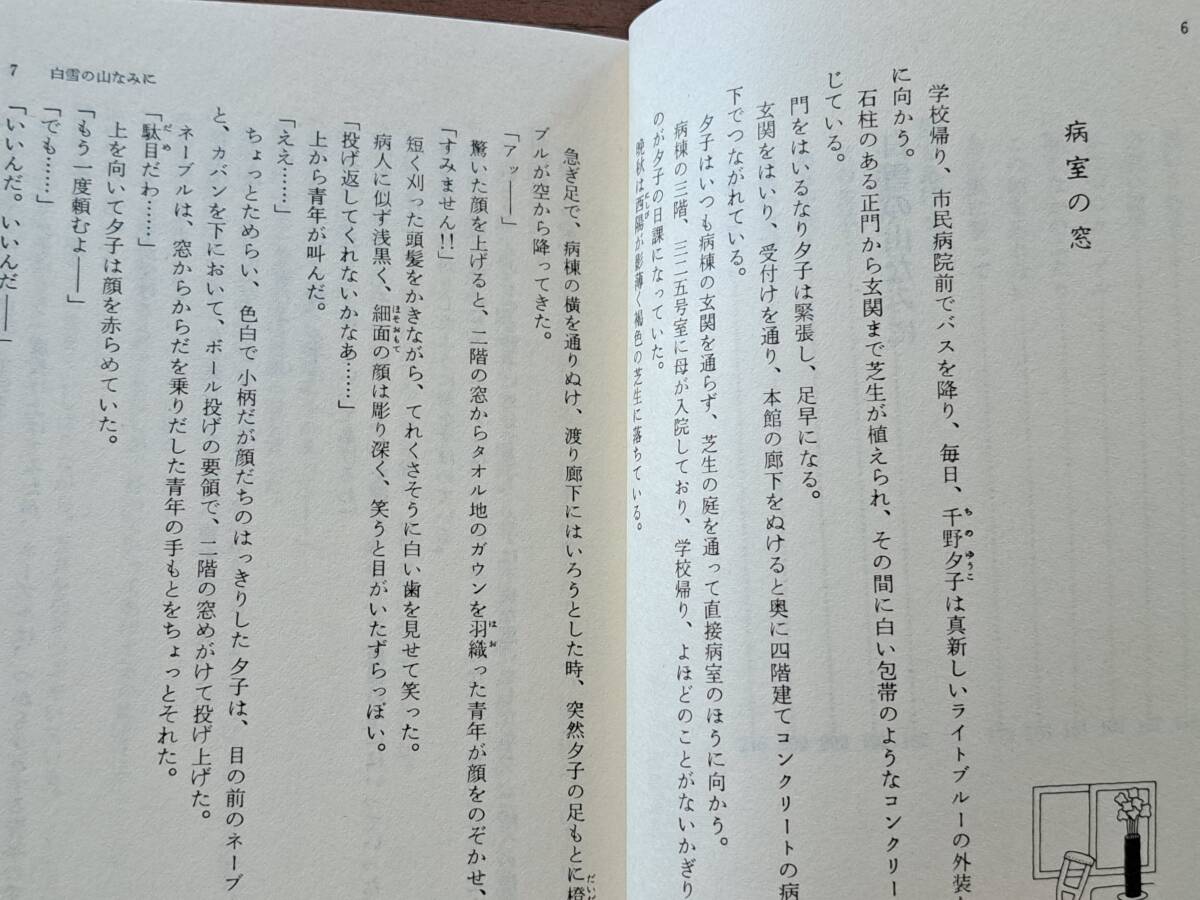 6
病室の窓
学校帰り、市民病院前でバスを降り、毎日、千野夕子は真新しいライトブルーの外装
ちのゆうこ
に向かう。
石柱のある正門から玄関まで芝生が植えられ、その間に白い包帯のようなコンクリー
じている。
門をはいるなり夕子は緊張し、足早になる。
玄関をはいり、受付けを通り、本館の廊下をぬけると奥に四階建てコンクリートの病
下でつながれている。
夕子はいつも病棟の玄関を通らず、芝生の庭を通って直接病室のほうに向かう。
病棟の三階、三二五号室に母が入院しており、学校帰り、よほどのことがないかぎり
のが夕子の日課になっていた。
晩秋は西陽が影薄く褐色の芝生に落ちている。
7 白雪の山なみに
急ぎ足で、病棟の横を通りぬけ、渡り廊下にはいろうとした時、突然夕子の足もとに橙
だいだ
ブルが空から降ってきた。
「アッ――」
驚いた顔を上げると、二階の窓からタオル地のガウンを羽織った青年が顔をのぞかせ、
はお
「すみません!!」
短く刈った頭髪をかきながら、てれくさそうに白い歯を見せて笑った。
病人に似ず浅黒く、細面の顔は彫り深く、笑うと目がいたずらっぽい。
ほそおもて
「投げ返してくれないかなあ……」
上から青年が叫んだ。
「ええ……」
ちょっとためらい、色白で小柄だが顔だちのはっきりした夕子は、目の前のネーブ
と、カバンを下において、ボール投げの要領で、二階の窓めがけて投げ上げた。
ネーブルは、窓からからだを乗りだした青年の手もとをちょっとそれた。
「駄目だわ……」
だめ
上を向いて夕子は顔を赤らめていた。
「もう一度頼むよ――」
「でも……」
「いいんだ。いいんだ――」